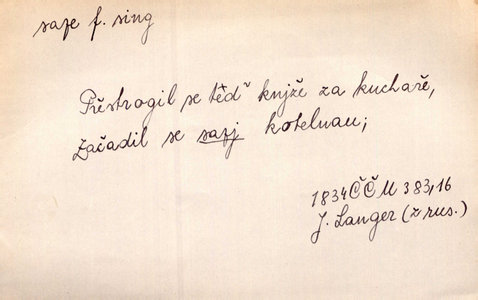 saze f. sing
Přestrogil se těď knjže za kuchaře,
Začadil se sazj kotelnau;
1834 ČČM 383,16
J. Langer (z rus.)